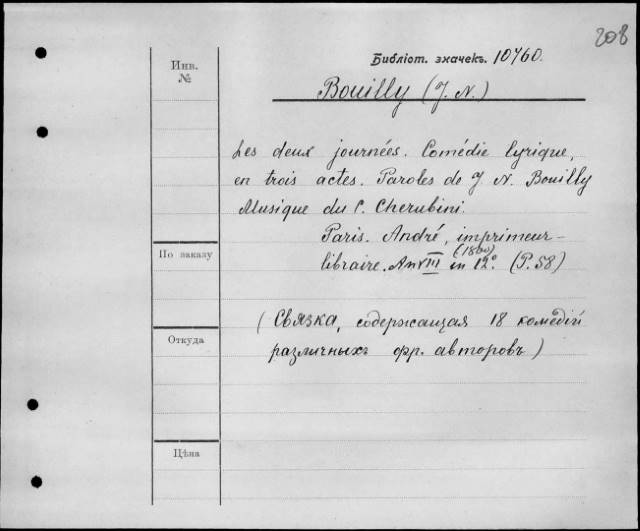 208
Библіот. значекъ. 10760.
Инв.
№
Bouilly (J. N.)
Les deux journées. Comédie lyrique,
en trois actes. Paroles de J. N. Bouilly
Musique du C. Cherubini.
Paris. André, imprimeur-
libraire. An VIII (1800) in 12°. (P. 58)
По заказу
(Связка, содержащая 18 комедій
различныхъ фр. авторовъ)
Откуда
Цѣна